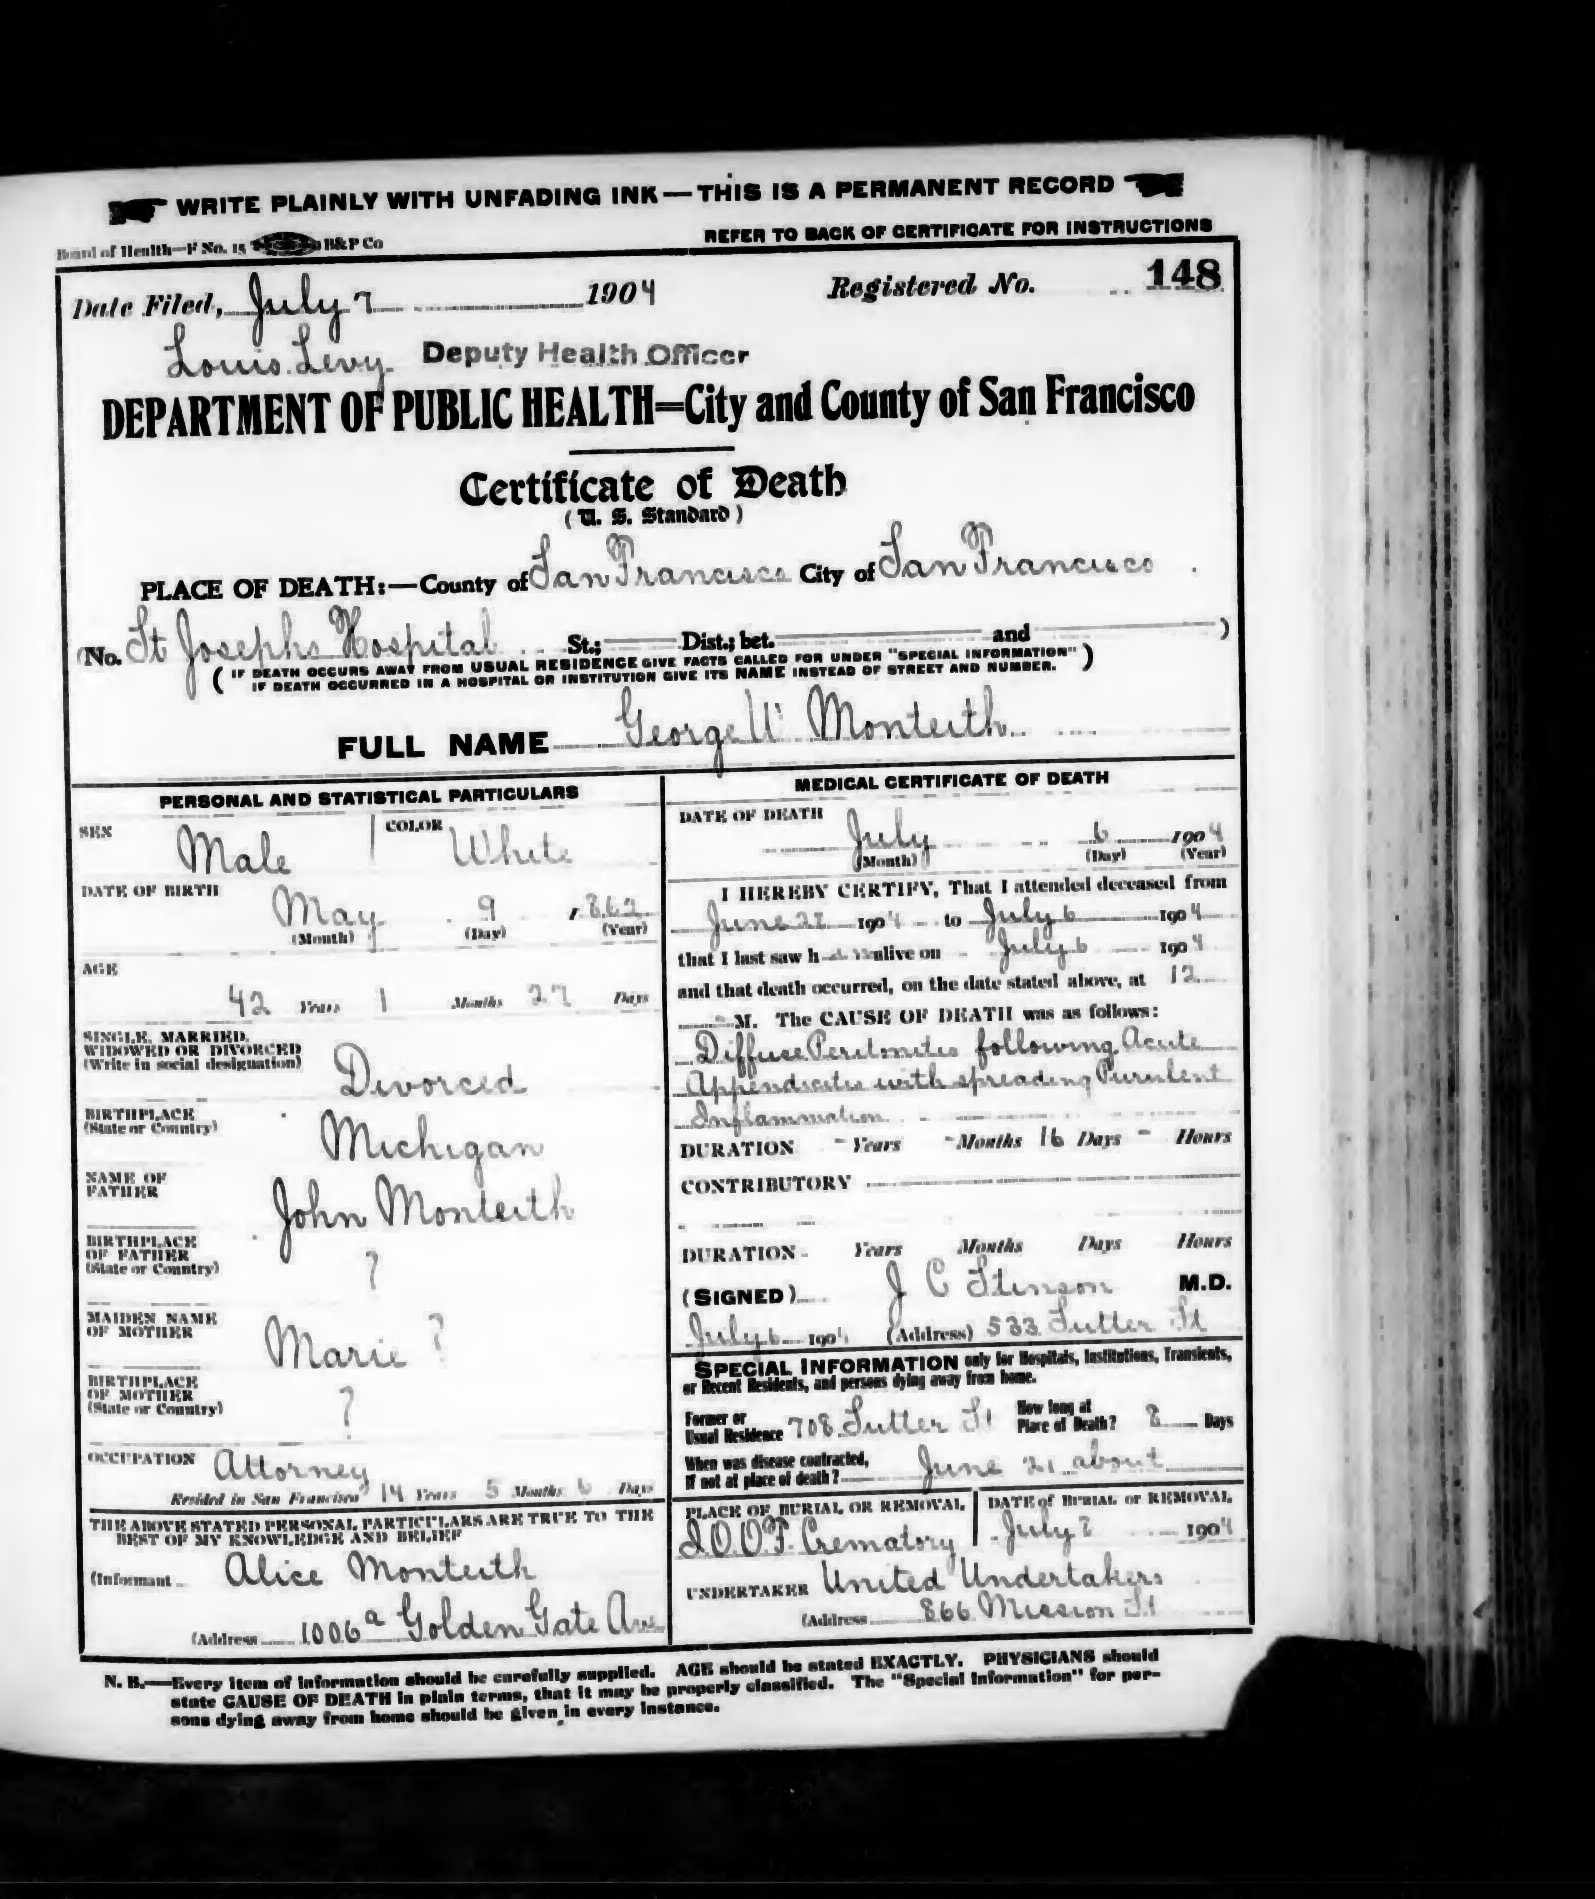 WRITE PLAINLY WITH UNFADING INK — THIS IS A PERMANENT RECORD
Board of Health—F No. 15 B&P Co
REFER TO BACK OF CERTIFICATE FOR INSTRUCTIONS
Date Filed, July 7 1904 Registered No. 148
Louis Levy Deputy Health Officer
DEPARTMENT OF PUBLIC HEALTH=City and County of San Francisco
Certificate of Death
( U. S. Standard )
PLACE OF DEATH:—County of San Francisco City of San Francisco
(No. St Josephs Hospital St.; Dist.; bet. and )
( IF DEATH OCCURS AWAY FROM USUAL RESIDENCE GIVE FACTS CALLED FOR UNDER "SPECIAL INFORMATION" )
IF DEATH OCCURRED IN A HOSPITAL OR INSTITUTION GIVE ITS NAME INSTEAD OF STREET AND NUMBER.
FULL NAME George W Monteith
PERSONAL AND STATISTICAL PARTICULARS
SEX Male COLOR White
DATE OF BIRTH
May 9 1862
(Month) (Day) (Year)
AGE
42 Years 1 Months 27 Days
SINGLE, MARRIED,
WIDOWED OR DIVORCED
(Write in social designation) Divorced
BIRTHPLACE
(State or Country) Michigan
NAME OF
FATHER John Monteith
BIRTHPLACE
OF FATHER
(State or Country) ?
MAIDEN NAME
OF MOTHER Marie ?
BIRTHPLACE
OF MOTHER
(State or Country) ?
OCCUPATION Attorney
Resided in San Francisco 14 Years 5 Months 6 Days
THE ABOVE STATED PERSONAL PARTICULARS ARE TRUE TO THE
BEST OF MY KNOWLEDGE AND BELIEF
(Informant Alice Monteith
(Address 1006a Golden Gate Ave
MEDICAL CERTIFICATE OF DEATH
DATE OF DEATH
July 6 1904
(Month) (Day) (Year)
I HEREBY CERTIFY, That I attended deceased from
June 28 1904 to July 6 1904
that I last saw h alive on July 6 1904
and that death occurred, on the date stated above, at 12
M. The CAUSE OF DEATH was as follows:
Diffuse Peritonitis following Acute
Appendicitis with spreading Purulent
Inflammation
DURATION - Years - Months 16 Days - Hours
CONTRIBUTORY
DURATION Years Months Days Hours
(SIGNED) J C Stinson M.D.
July 6 1904 (Address) 533 Sutter St
SPECIAL INFORMATION only for Hospitals, Institutions, Transients,
or Recent Residents, and persons dying away from home.
Former or
Usual Residence 708 Sutter St How long at
Place of Death? 8 Days
When was disease contracted,
If not at place of death? June 21 about
PLACE OF BURIAL OR REMOVAL DATE of BURIAL or REMOVAL
I.O.O.F. Crematory July 8 1904
UNDERTAKER United Undertakers
(Address 866 Mission St
N. B.—Every item of information should be carefully supplied. AGE should be stated EXACTLY. PHYSICIANS should
state CAUSE OF DEATH in plain terms, that it may be properly classified. The "Special Information" for per-
sons dying away from home should be given in every instance.